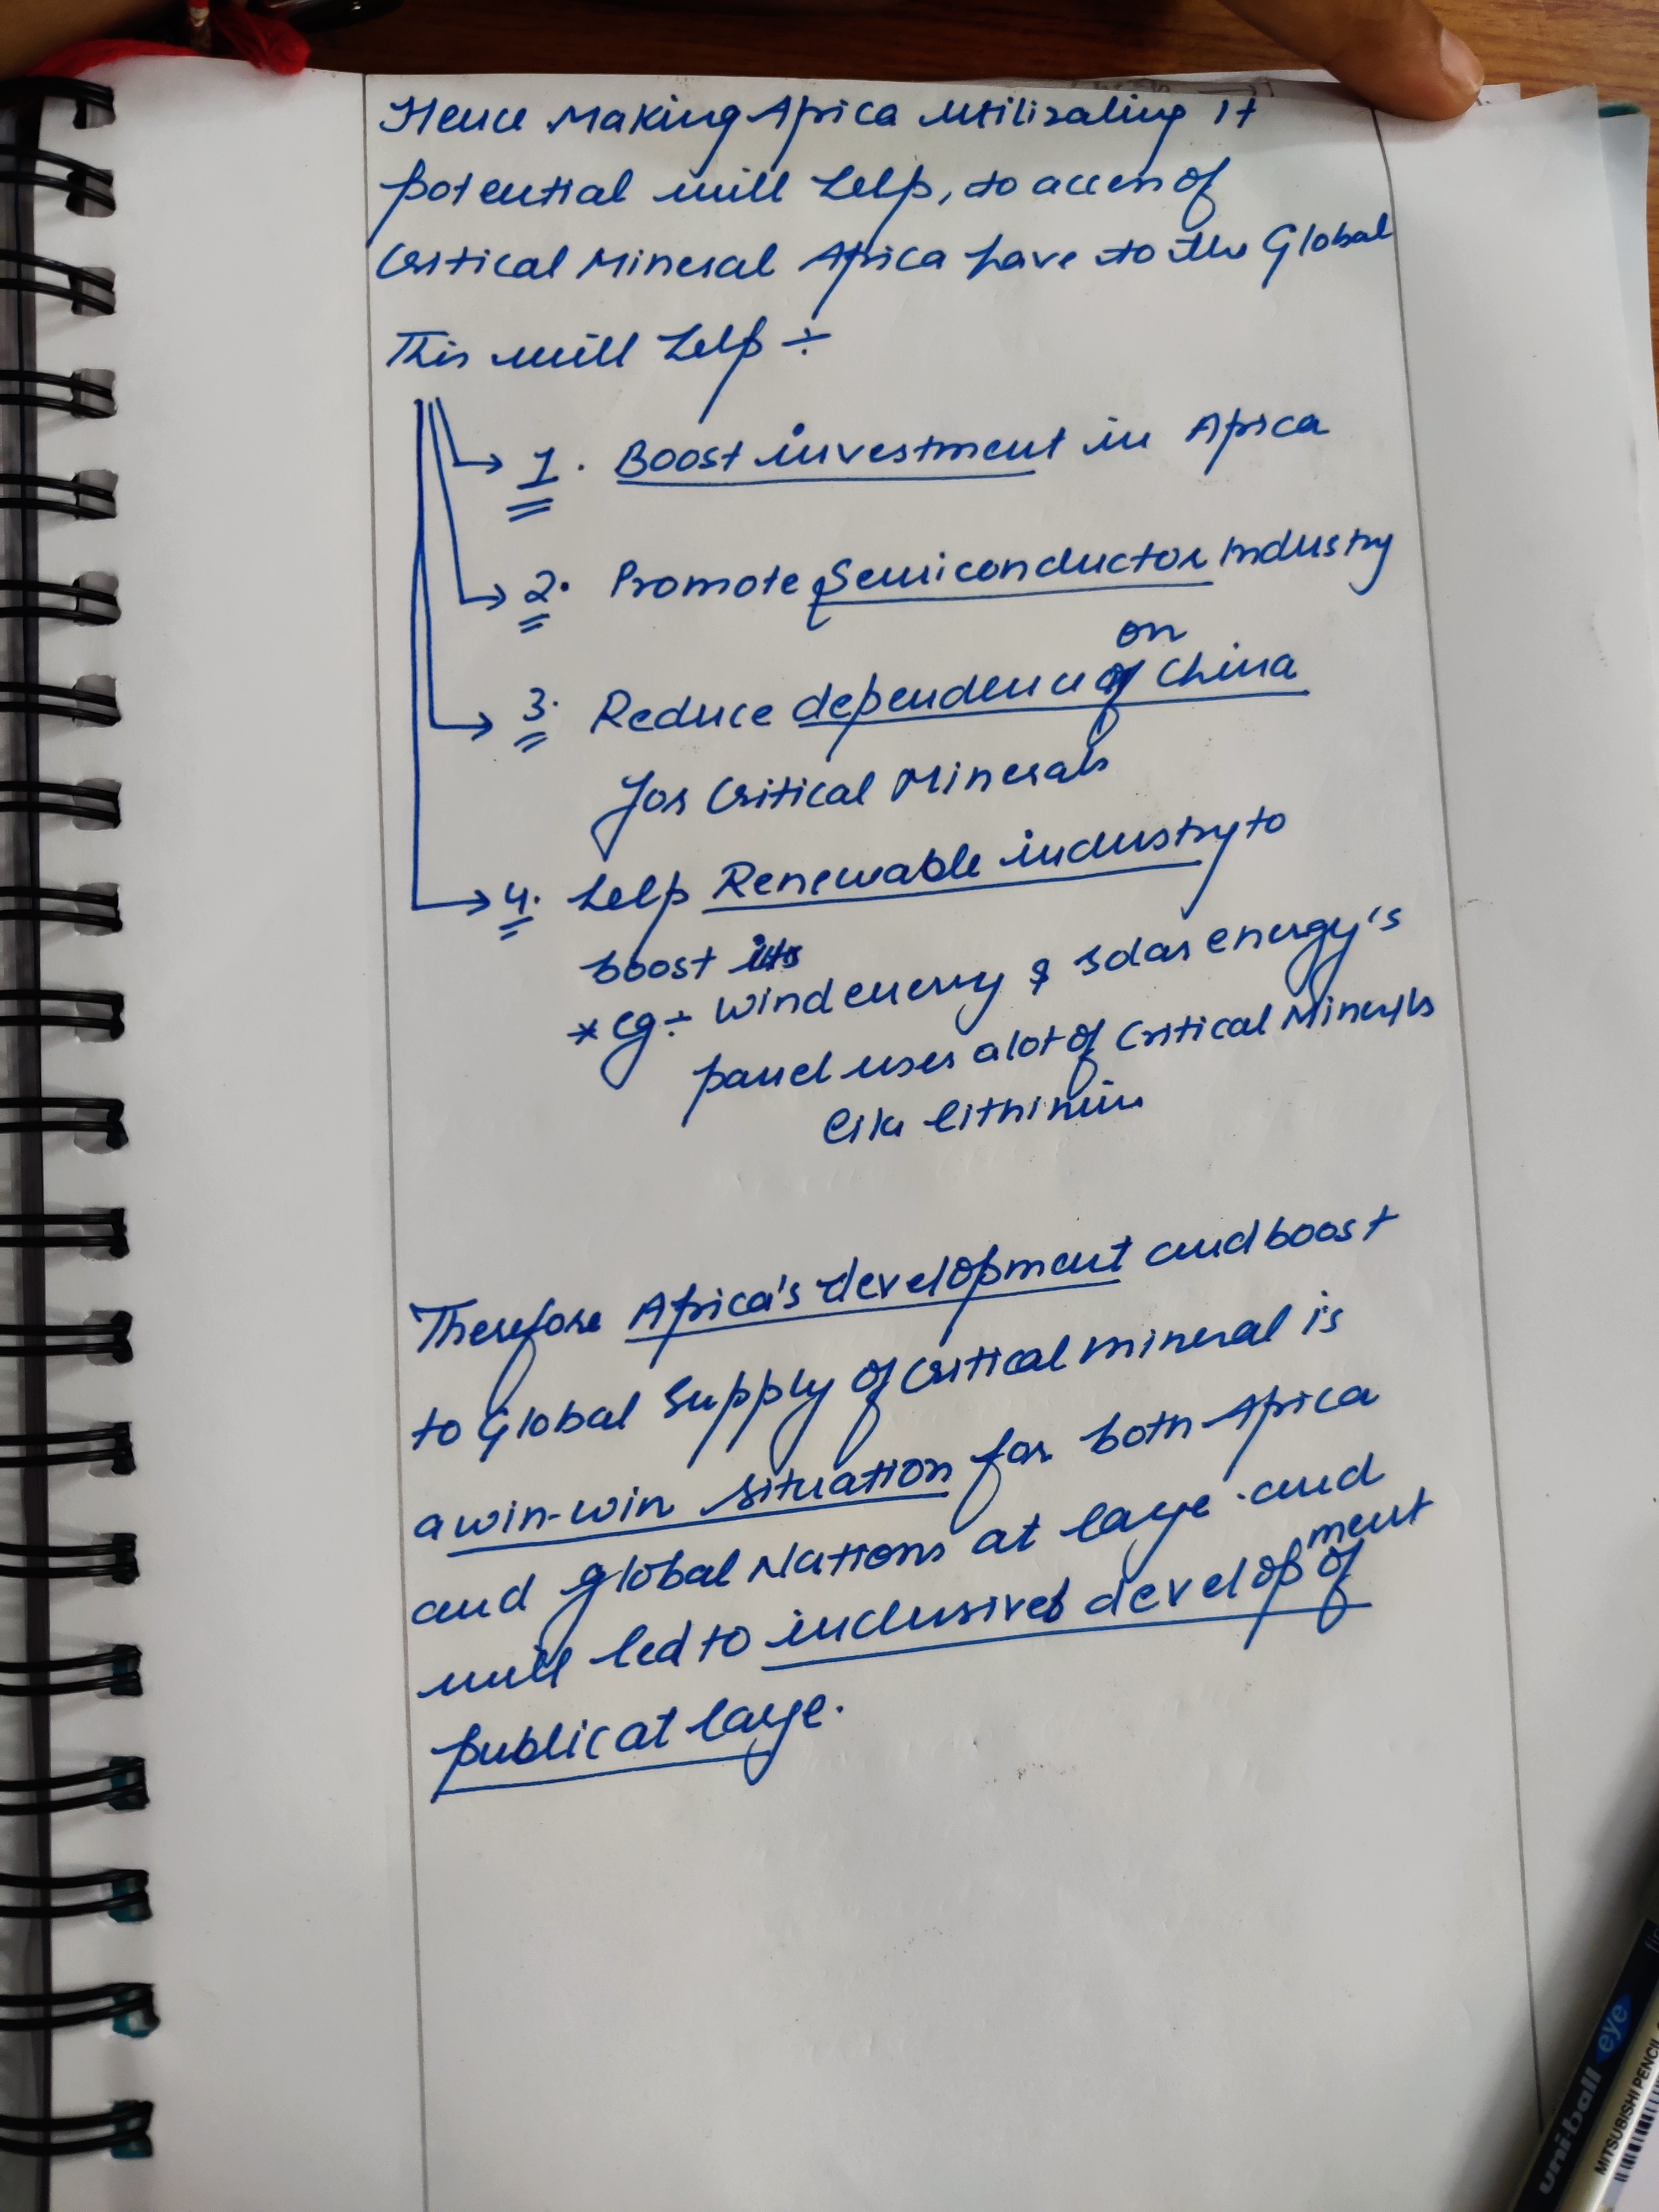 Hence Making Africa utilizaling it
potential will help, to access of
Critical Mineral Africa have to the Global
This will help ÷
→ 1. Boost investment in Africa
→ 2. Promote Semiconductor Industry
on
→ 3. Reduce dependence of China
for Critical Minerals
→ 4. help Renewable industry to
boost its
* eg ÷ wind energy & solar energy's
panel uses a lot of Critical Minerals
like lithinium
Therefore Africa's development and boost
to Global Supply of Critical mineral is
a win-win situation for both Africa
and global Nations at large and
will led to inclusive development of
public at large.
uni-ball eye
MITSUBISHI PENCIL